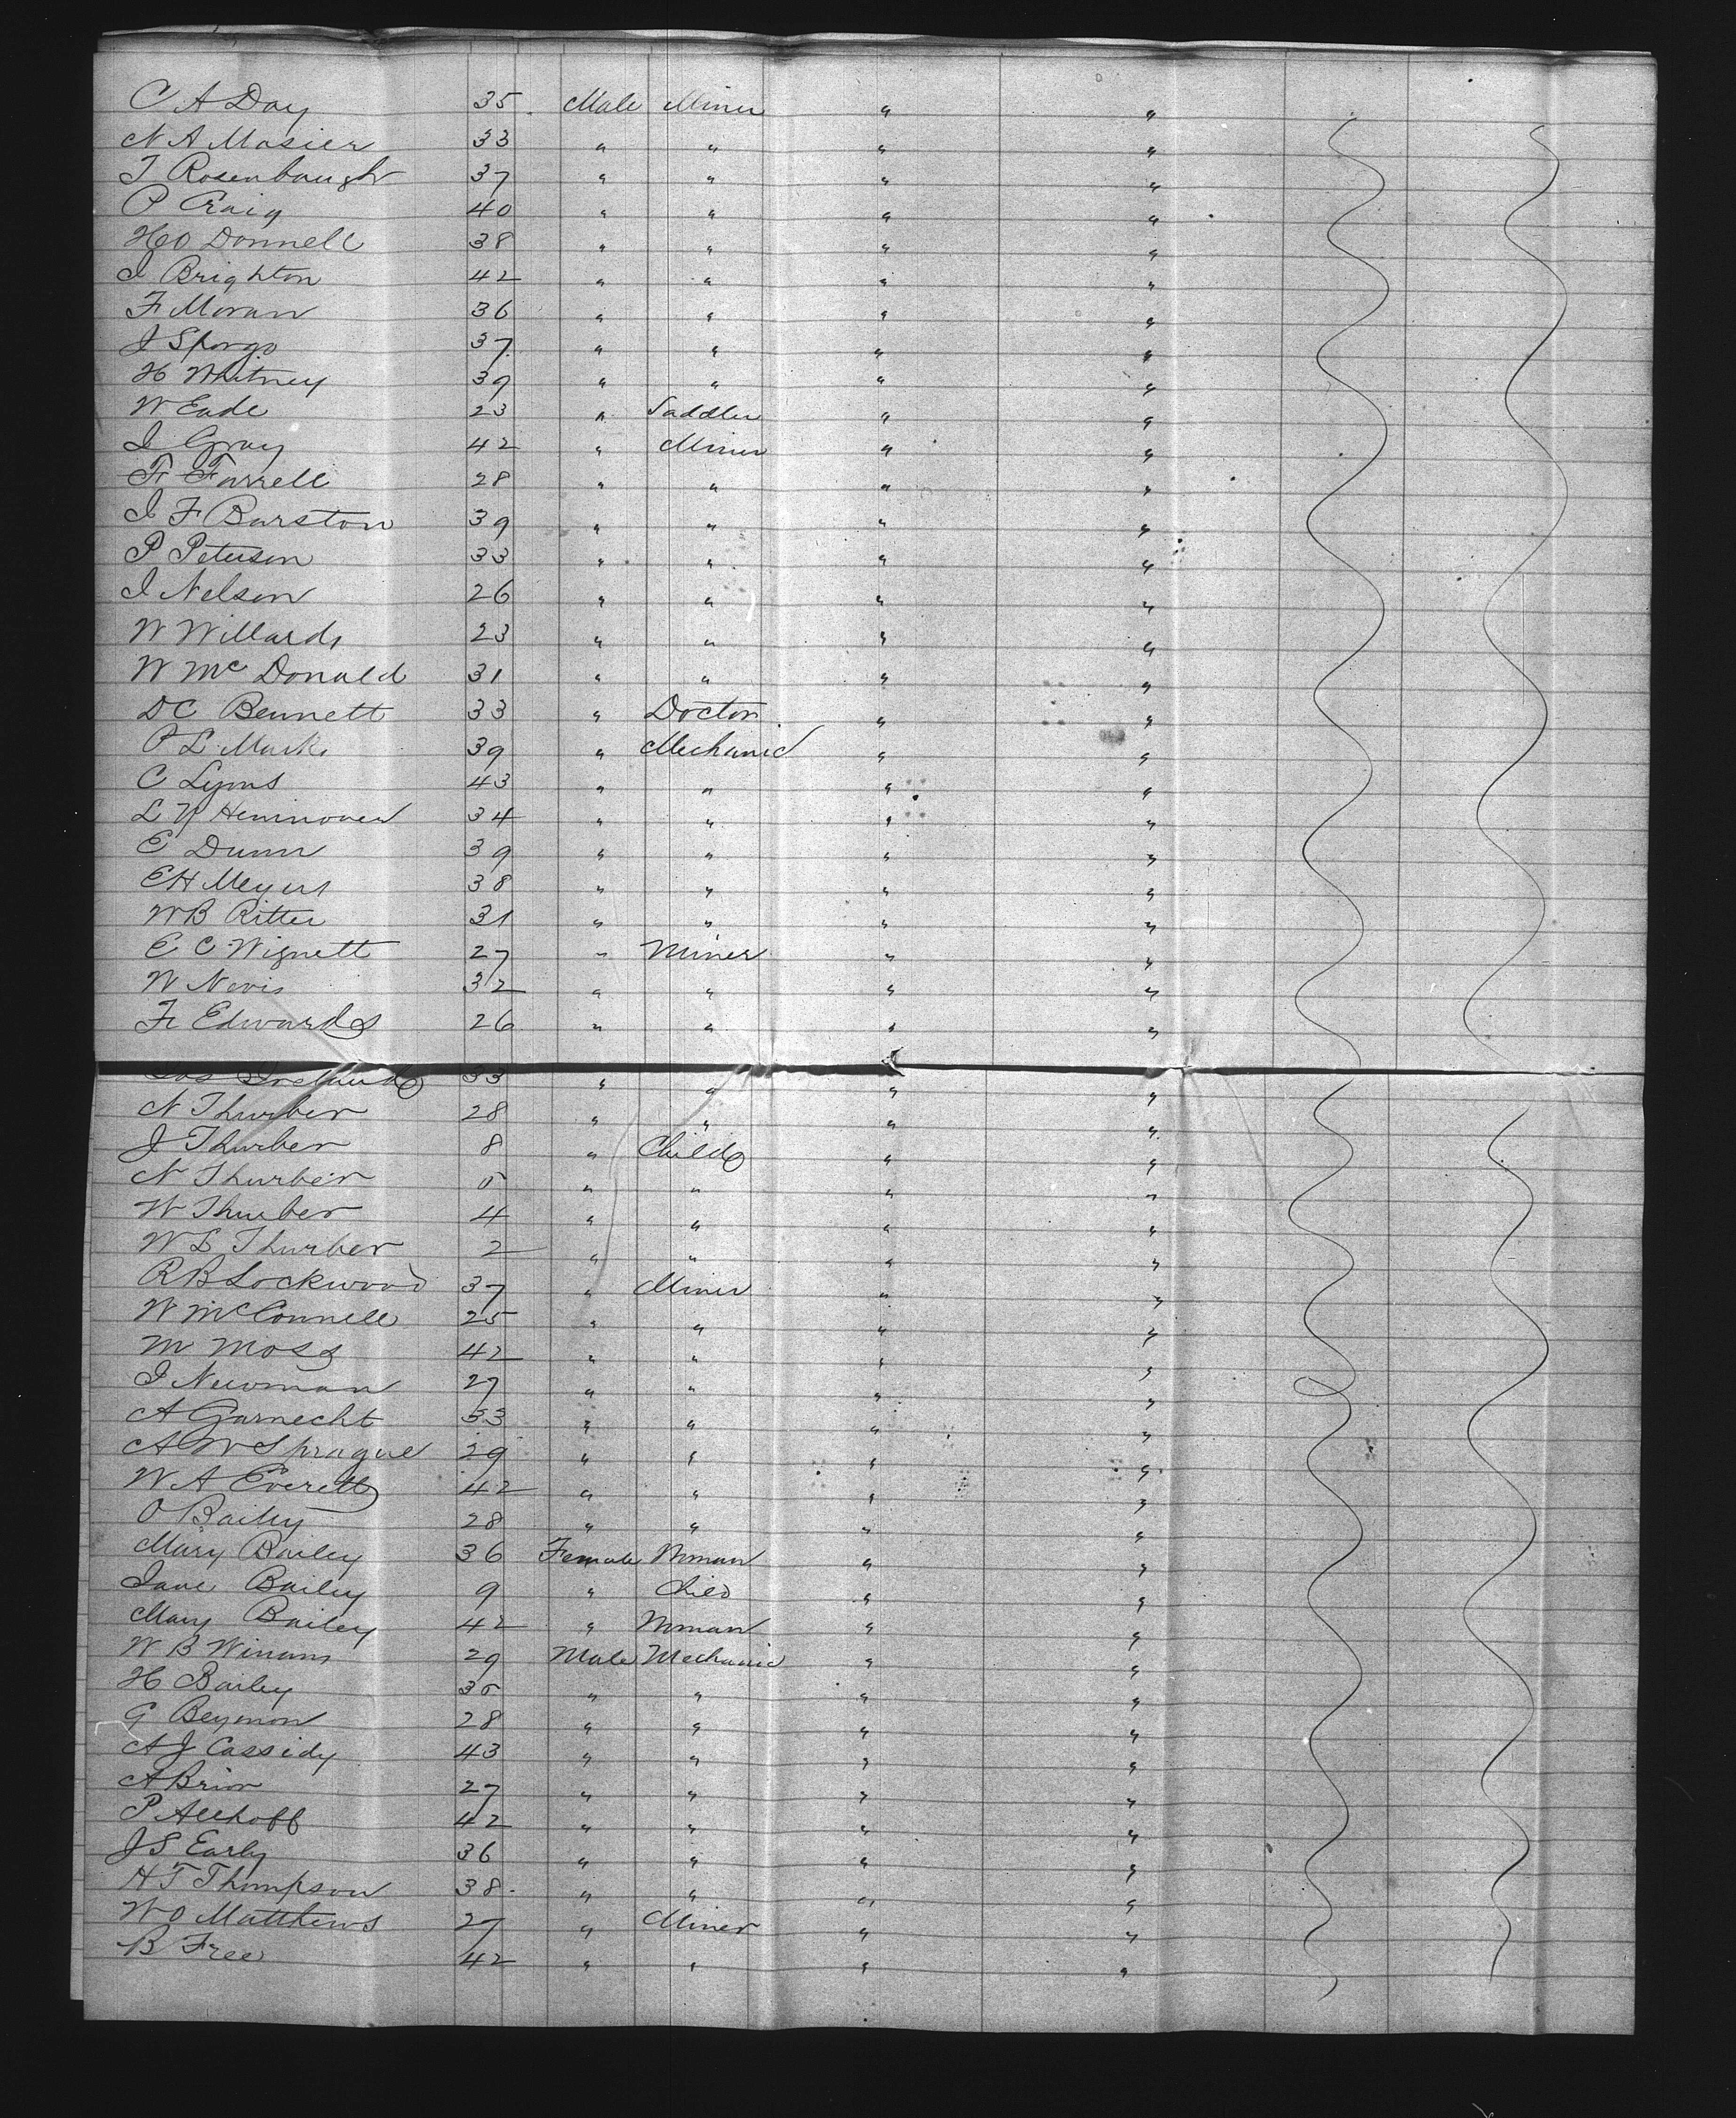 C A Day 35 Male Miner " "
N A Mosier 33 " " " "
J Rosenbaugh 37 " " " "
P Craig 40 " " " "
H O Donnell 38 " " " "
J Brighton 42 " " " "
F Moran 36 " " " "
J Spargo 37 " " " "
H Whitney 39 " " " "
W Eade 23 " Saddler " "
J Gray 42 " Miner " "
F Farrell 28 " " " "
J F Barston 39 " " " "
P Peterson 33 " " " "
J Nelson 26 " " " "
W Willards 23 " " " "
W McDonald 31 " " " "
D C Bennett 33 " Doctor " "
P L Marks 39 " Mechanic " "
C Lyons 43 " " " "
L N Heminover 34 " " " "
E Dunn 39 " " " "
E H Meyers 38 " " " "
W B Ritter 31 " " " "
E C Wignett 27 " Miner " "
W Novis 32 " " " "
F Edwards 26 " " " "
Ireland 33 " " " "
N Thurber 28 " " " "
J Thurber 8 " Child " "
N Thurber 5 " " " "
W Thurber 4 " " " "
W S Thurber 2 " " " "
R B Lockwood 37 " Miner " "
W McConnell 25 " " " "
M Moss 42 " " " "
J Newman 27 " " " "
A Garnecht 33 " " " "
A W Sprague 29 " " " "
W A Everett 42 " " " "
O Bailey 28 " " " "
Mary Bailey 36 Female Woman " "
Jane Bailey 9 " Child " "
Mary Bailey 42 " Woman " "
W B Winans 29 Male Mechanic " "
H Bailey 35 " " " "
G Beymon 28 " " " "
A J Cassidy 43 " " " "
A Brion 27 " " " "
P Allhoff 42 " " " "
J S Early 36 " " " "
H T Thompson 38 " " " "
W O Matthews 27 " Miner " "
B Free 42 " " " "